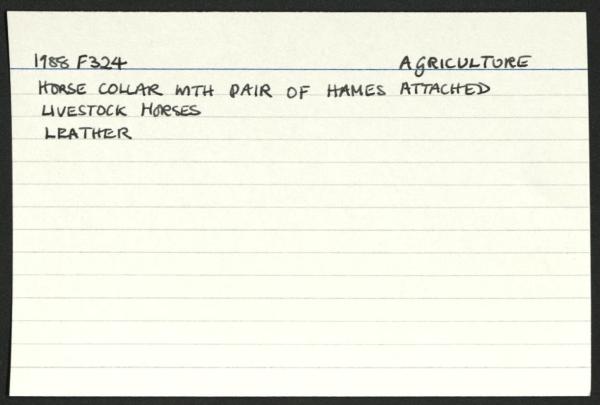 1988 F324 AGRICULTURE
HORSE COLLAR WITH PAIR OF HAMES ATTACHED
LIVESTOCK HORSES
LEATHER